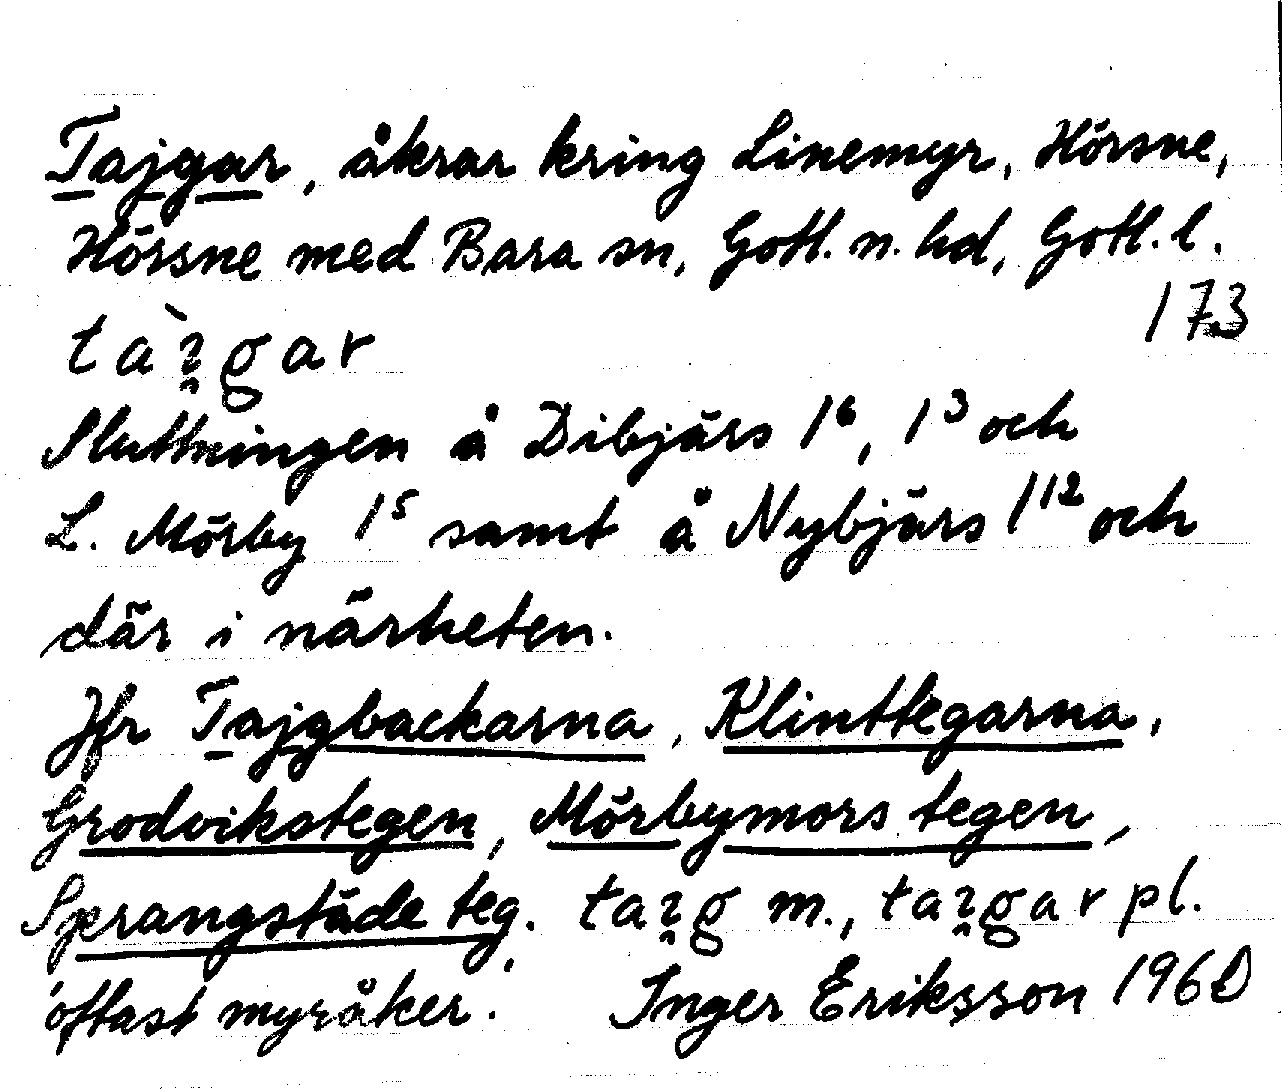 Tajgar, åkrar kring Linemyr, Hörsne,
Hörsne med Bara sn, Gotl. n. hd, Gotl. l.
173
ta`ı̯gar
Sluttningen å Dibjärs 1⁶, 1³ och
L. Mörby 1⁵ samt å Nybjärs 1¹² och
där i närheten.
Jfr Tajgbackarna, Klinttegarna,
Grodvikstegen, Mörbymors tegen,
Sprangstäde teg. taı̯g m., taı̯gar pl.
'oftast myråker'. Inger Eriksson 1960